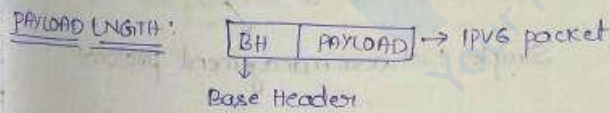 PAYLOAD LNGTH:
BH PAYLOAD → IPV6 packet
Base Header